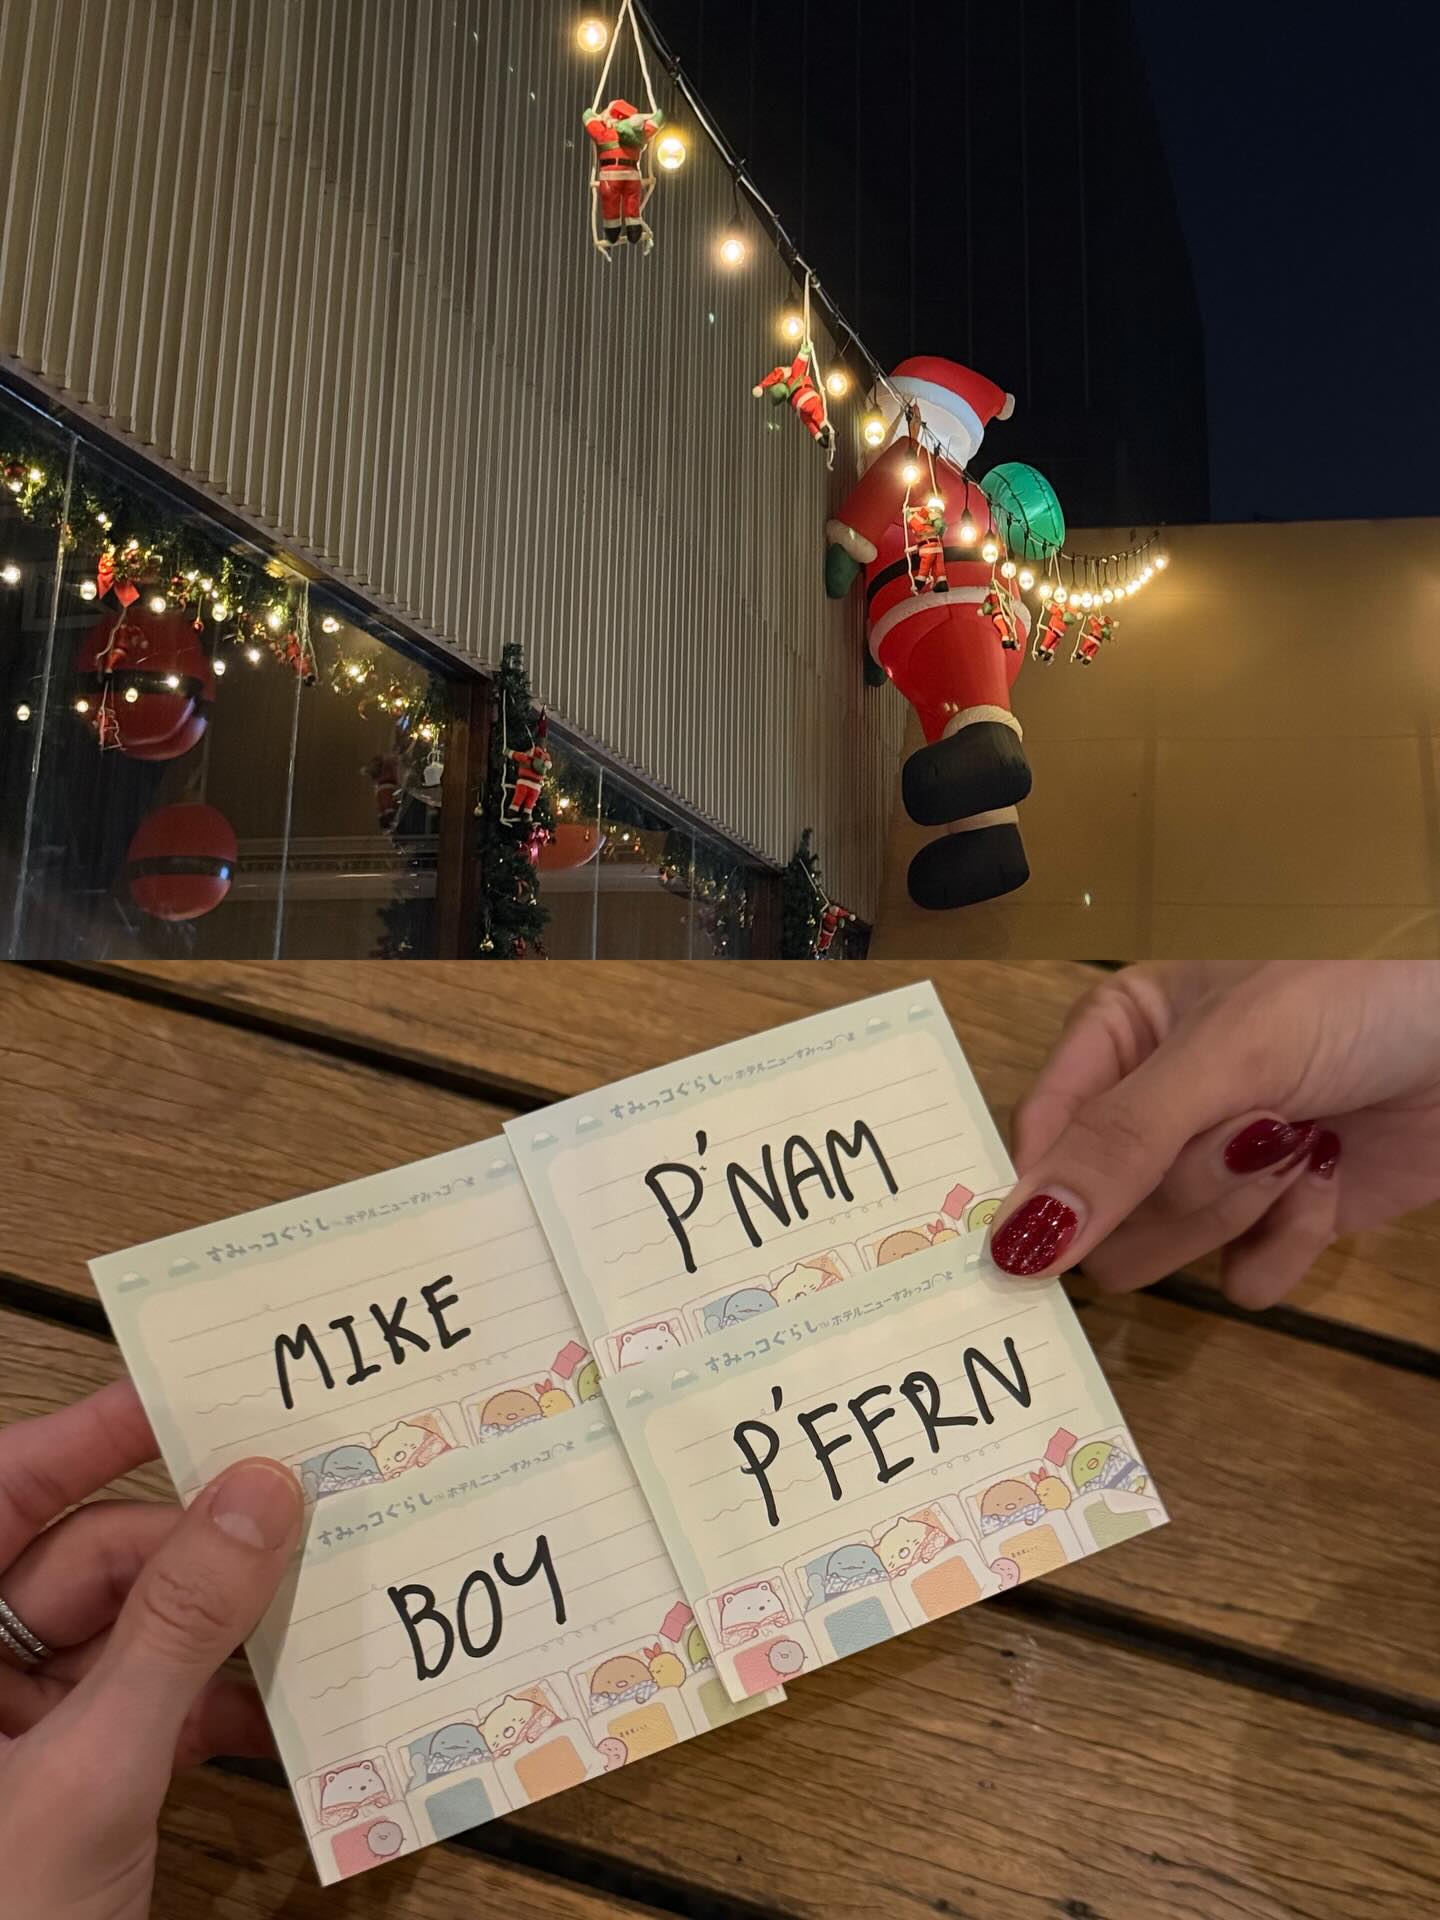 すみっコぐらし ホテルニューすみっコ
P'NAM
すみっコぐらし ホテルニューすみっコ
MIKE
すみっコぐらし ホテルニューすみっコ
P'FERN
すみっコぐらし ホテルニューすみっコ
BOY